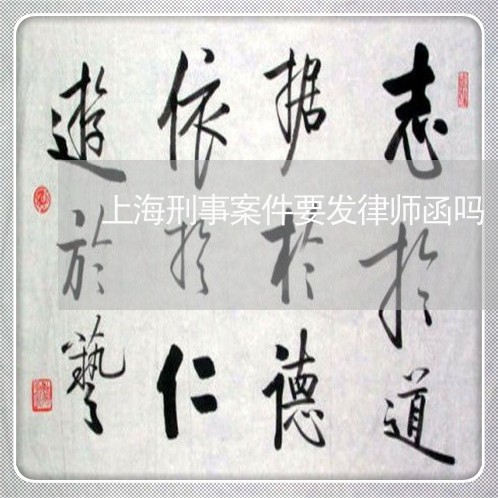 志於道
据於德
依於仁
遊於藝
上海刑事案件要发律师函吗